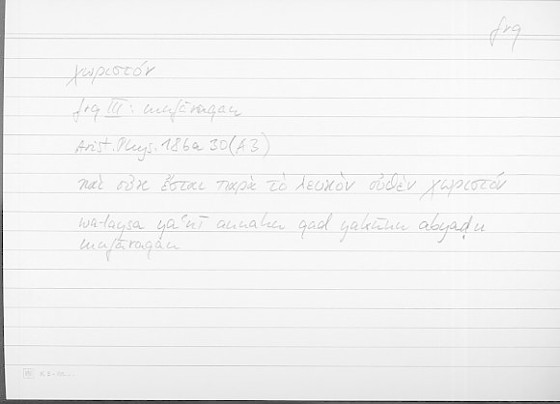 frq
χωριστόν
frq III: mufāraqan
Arist. Phys. 186a 30 (A3)
καὶ οὐκ ἔσται παρὰ τὸ λευκὸν οὐθὲν χωριστόν
wa-laysa yaʿnī annahu qad yakūnu abyaḍu
mufāraqan